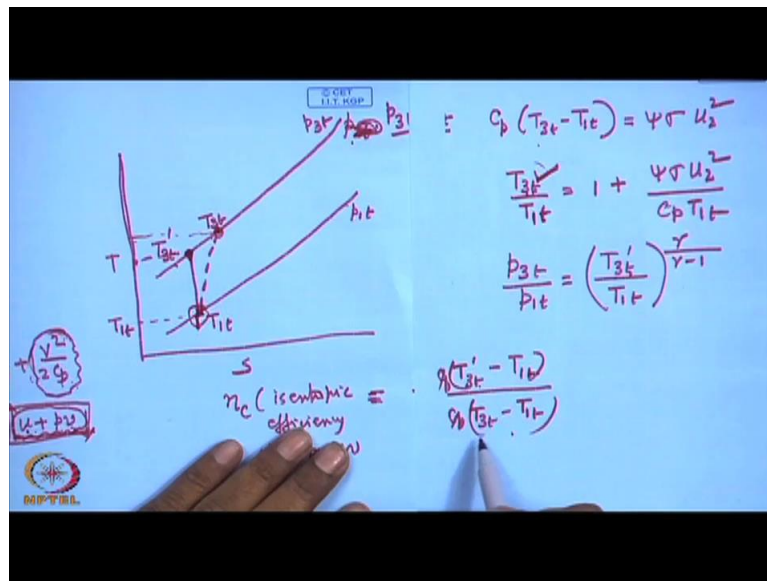 © CET
I.I.T. KGP
p3t p3t
≡ Cp (T3t - T1t) = ψ σ u2²
T3t / T1t = 1 + ψ σ u2² / Cp T1t
p3t / p1t = (T3t' / T1t)^(γ / γ-1)
T3t
p1t
T
T3t'
T1t
T1t
S
+ V² / 2Cp
u + pv
ηc (isentropic
efficiency
= Cp(T3t' - T1t) / Cp(T3t - T1t)
NPTEL